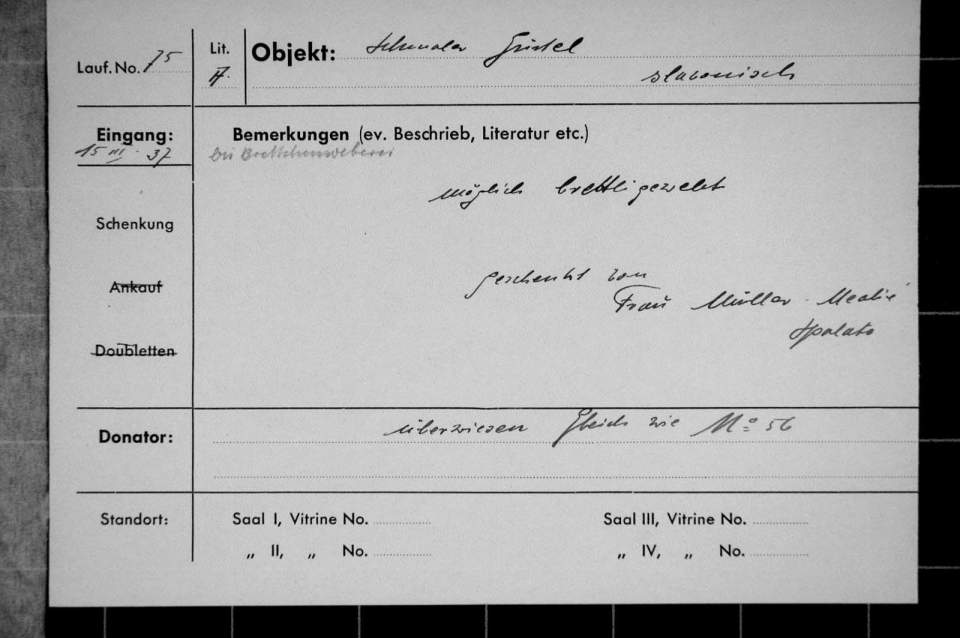 Lauf. No. 75
Lit. A.
Objekt: schmaler Gürtel
slavonisch
Eingang: 15 III. 37
Bemerkungen (ev. Beschrieb, Literatur etc.)
bei Brettchenweberei
möglich brettligewebt
Schenkung
Ankauf
Doubletten
geschenkt von
Frau Müller
Spalato
Donator: überwiesen Gleich wie No 56
Standort:
Saal I, Vitrine No. Saal III, Vitrine No.
„ II, „ No. „ IV, „ No.